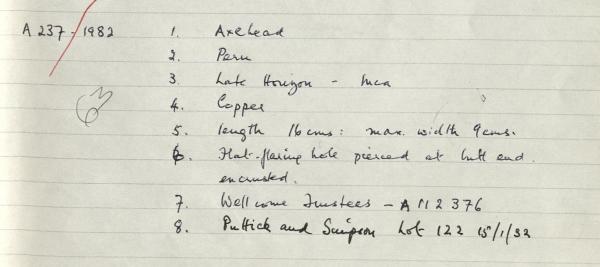 A 237-1982 1. Axehead
2. Peru
3. Late Horizon - Inca
4. Copper
63
5. length 16 cms: max. width 9 cms.
6. Flat-flaring hole pierced at butt end.
encrusted.
7. Wellcome Trustees - A 112376
8. Puttick and Simpson Lot 122 15/1/32